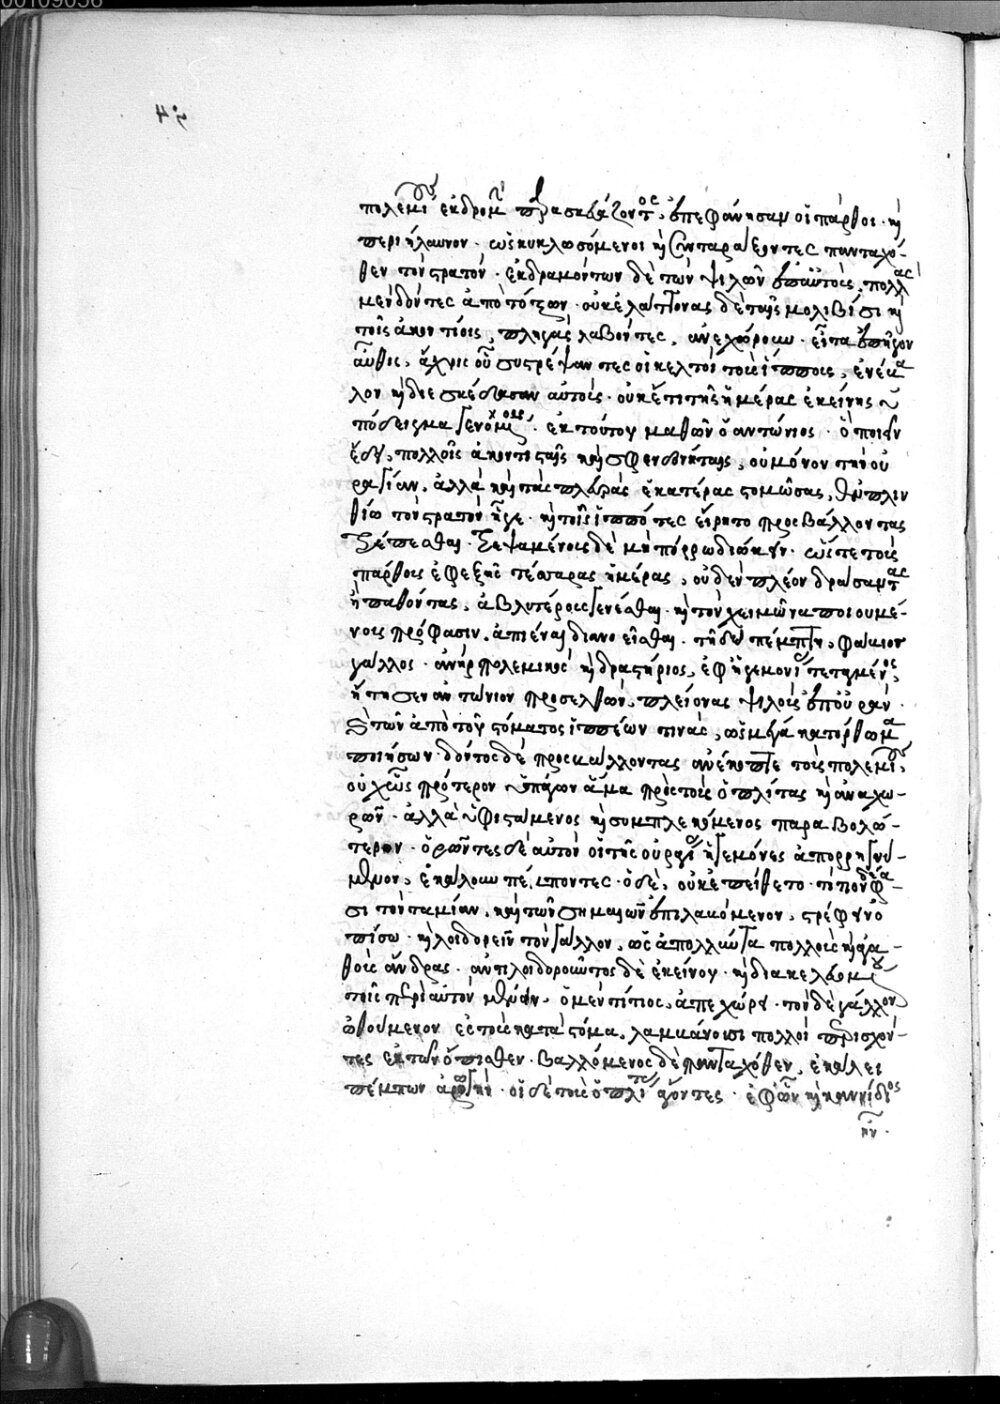 πολεμίους ἐκδρομὴν παρασκευάζοντος, ὑπεφάνησαν οἱ πάρθοι· καὶ
περιήλαυνον· ὡς κυκλωσόμενοι καὶ συνταράξοντες πανταχό-
θεν τὸν στρατόν· ἐκδραμόντων δὲ τῶν ψιλῶν ἐπ' αὐτοὺς, πολλὰς
μὲν δόντες ἀπὸ τόξων· οὐκ ἐλάττονας δὲ ταῖς μολιβίσι καὶ
τοῖς ἀκοντίοις, πληγὰς λαβόντες, ἀνεχώρουν· εἶτα ἐπῆγον
αὖθις, ἄχρις οὗ συστρέψαντες οἱ κελτοὶ τοὺς ἵππους, ἐνέβα-
λον καὶ διεσκέδασαν αὐτούς· οὐκέτι τῆς ἡμέρας ἐκείνης ὑ
πόδειγμα γενομένους· ἐκ τούτου μαθὼν ὁ ἀντώνιος· ὃ ποιεῖν
ἔδει, πολλοῖς ἀκοντισταῖς καὶ σφενδονήταις, οὐ μόνον τὴν οὐ
ραγίαν, ἀλλὰ καὶ τὰς πλευρὰς ἑκατέρας στομώσας, ἐν πλιν
θίῳ τὸν στρατὸν ἦγε· καὶ τοῖς ἱππόταις εἴρητο προσβάλλοντας
τρέπεσθαι· τρεψαμένους δὲ μὴ πόρρω διώκειν· ὥστε τοὺς
πάρθους ἐφεξῆς τέσσαρας ἡμέρας, οὐδὲν πλέον δράσαντας
ἢ παθόντας, ἀβλυτέρους γενέσθαι· καὶ τὸν χειμῶνα ποιουμέ-
νους πρόφασιν, ἀπιέναι διανοεῖσθαι· τῇ δὲ πέμπτῃ, φλάυιος
γάλλος· ἀνὴρ πολεμικὸς καὶ δραστήριος, ἐφ' ἡγεμονίας τεταγμένος,
ᾔτησεν ἀντώνιον προσελθὼν, πλείονας ψιλοὺς ἀπ' οὐρᾶς·
καὶ τῶν ἀπὸ τοῦ στόματος ἱππέων τινὰς, ὡς μέγα κατόρθωμα
ποιήσων· δόντος δὲ προσβάλλοντας ἀνέκοπτε τοὺς πολεμίους,
οὐχ ὡς πρότερον ὑπάγων ἅμα πρὸς τοὺς ὁπλίτας καὶ ἀναχω-
ρῶν· ἀλλὰ ὑφιστάμενος καὶ συμπλεκόμενος παραβολώ-
τερον· ὁρῶντες δὲ αὐτὸν οἱ τῆς οὐραγίας ἡγεμόνες ἀπορρηγνύ-
μενον, ἐκάλουν πέμποντες· ὁ δὲ, οὐκ ἐπείθετο· τίτιον δέ φα-
σι τὸν ταμίαν, καὶ τῶν σημαιῶν ἐπιλαβόμενον, στρέφειν ὀ
πίσω· καὶ λοιδορεῖν τὸν γάλλον, ὡς ἀπολλύντα πολλοὺς καὶ ἀγα-
θοὺς ἄνδρας· ἀντιλοιδοροῦντος δὲ ἐκείνου· καὶ διακελευομένου
τοῖς περὶ αὐτὸν μένειν, ὁ μὲν τίτιος, ἀπεχώρει· τὸν δὲ γάλλον
ὠθούμενον εἰς τοὺς κατὰ στόμα, λαμβάνουσι πολλοὶ περισχόν-
τες ἐκ τῶν ὄπισθεν· βαλλόμενος δὲ πανταχόθεν, ἐκάλει
πέμπων ἀρωγήν· οἱ δὲ τοὺς ὁπλίτας ἄγοντες· ἐφ' ὧν καὶ καννίδιος
ἦν·